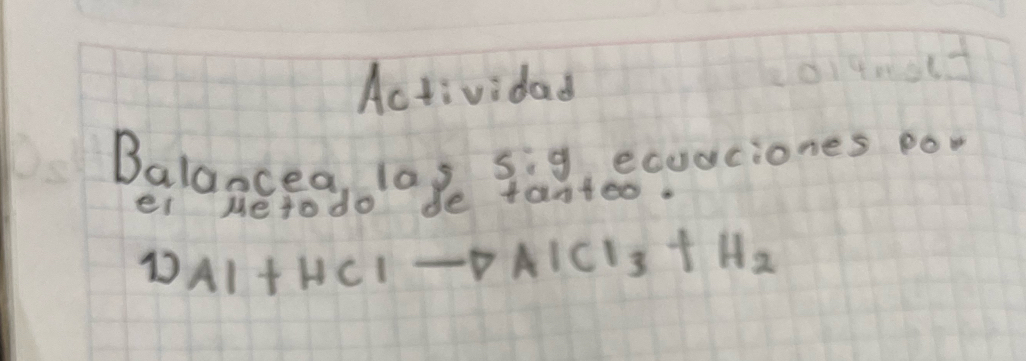 Actividad
Balancea, las sig ecuaciones por
el Metodo de tanteo.
1) Al + HCl → AlCl₃ + H₂